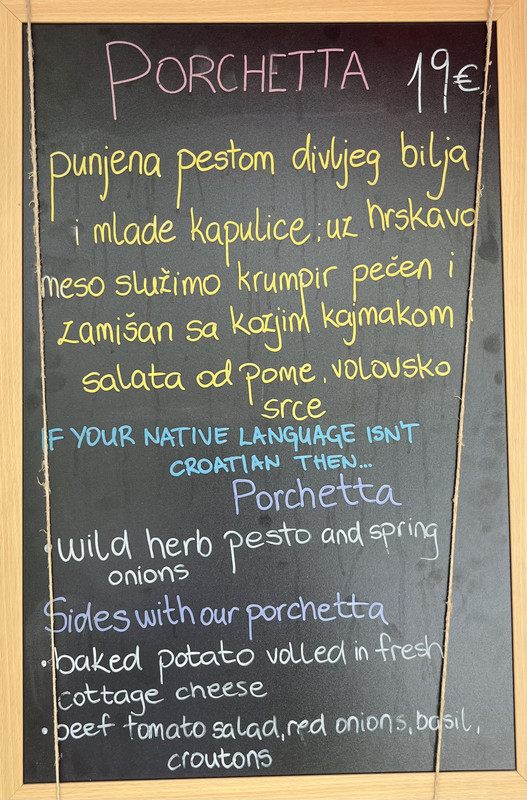 PORCHETTA 19€
punjena pestom divljeg bilja
i mlade kapulice, uz hrskavo
meso služimo krumpir pečen i
zamišan sa kozjim kajmakom i
salata od pome, volovsko
srce
IF YOUR NATIVE LANGUAGE ISN'T
CROATIAN THEN...
Porchetta
• wild herb pesto and spring
onions
Sides with our porchetta
• baked potato volled in fresh
cottage cheese
• beef tomato salad, red onions, basil,
croutons